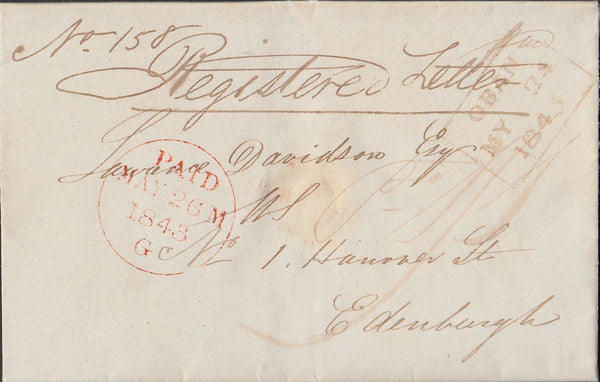 No 158
Registered Letter
Paid
OBAN
MY 24
1843
Lawrence Davidson Esq
WS
No 1. Hanover St
Edenburgh
PAID
MAY 26 M
1843